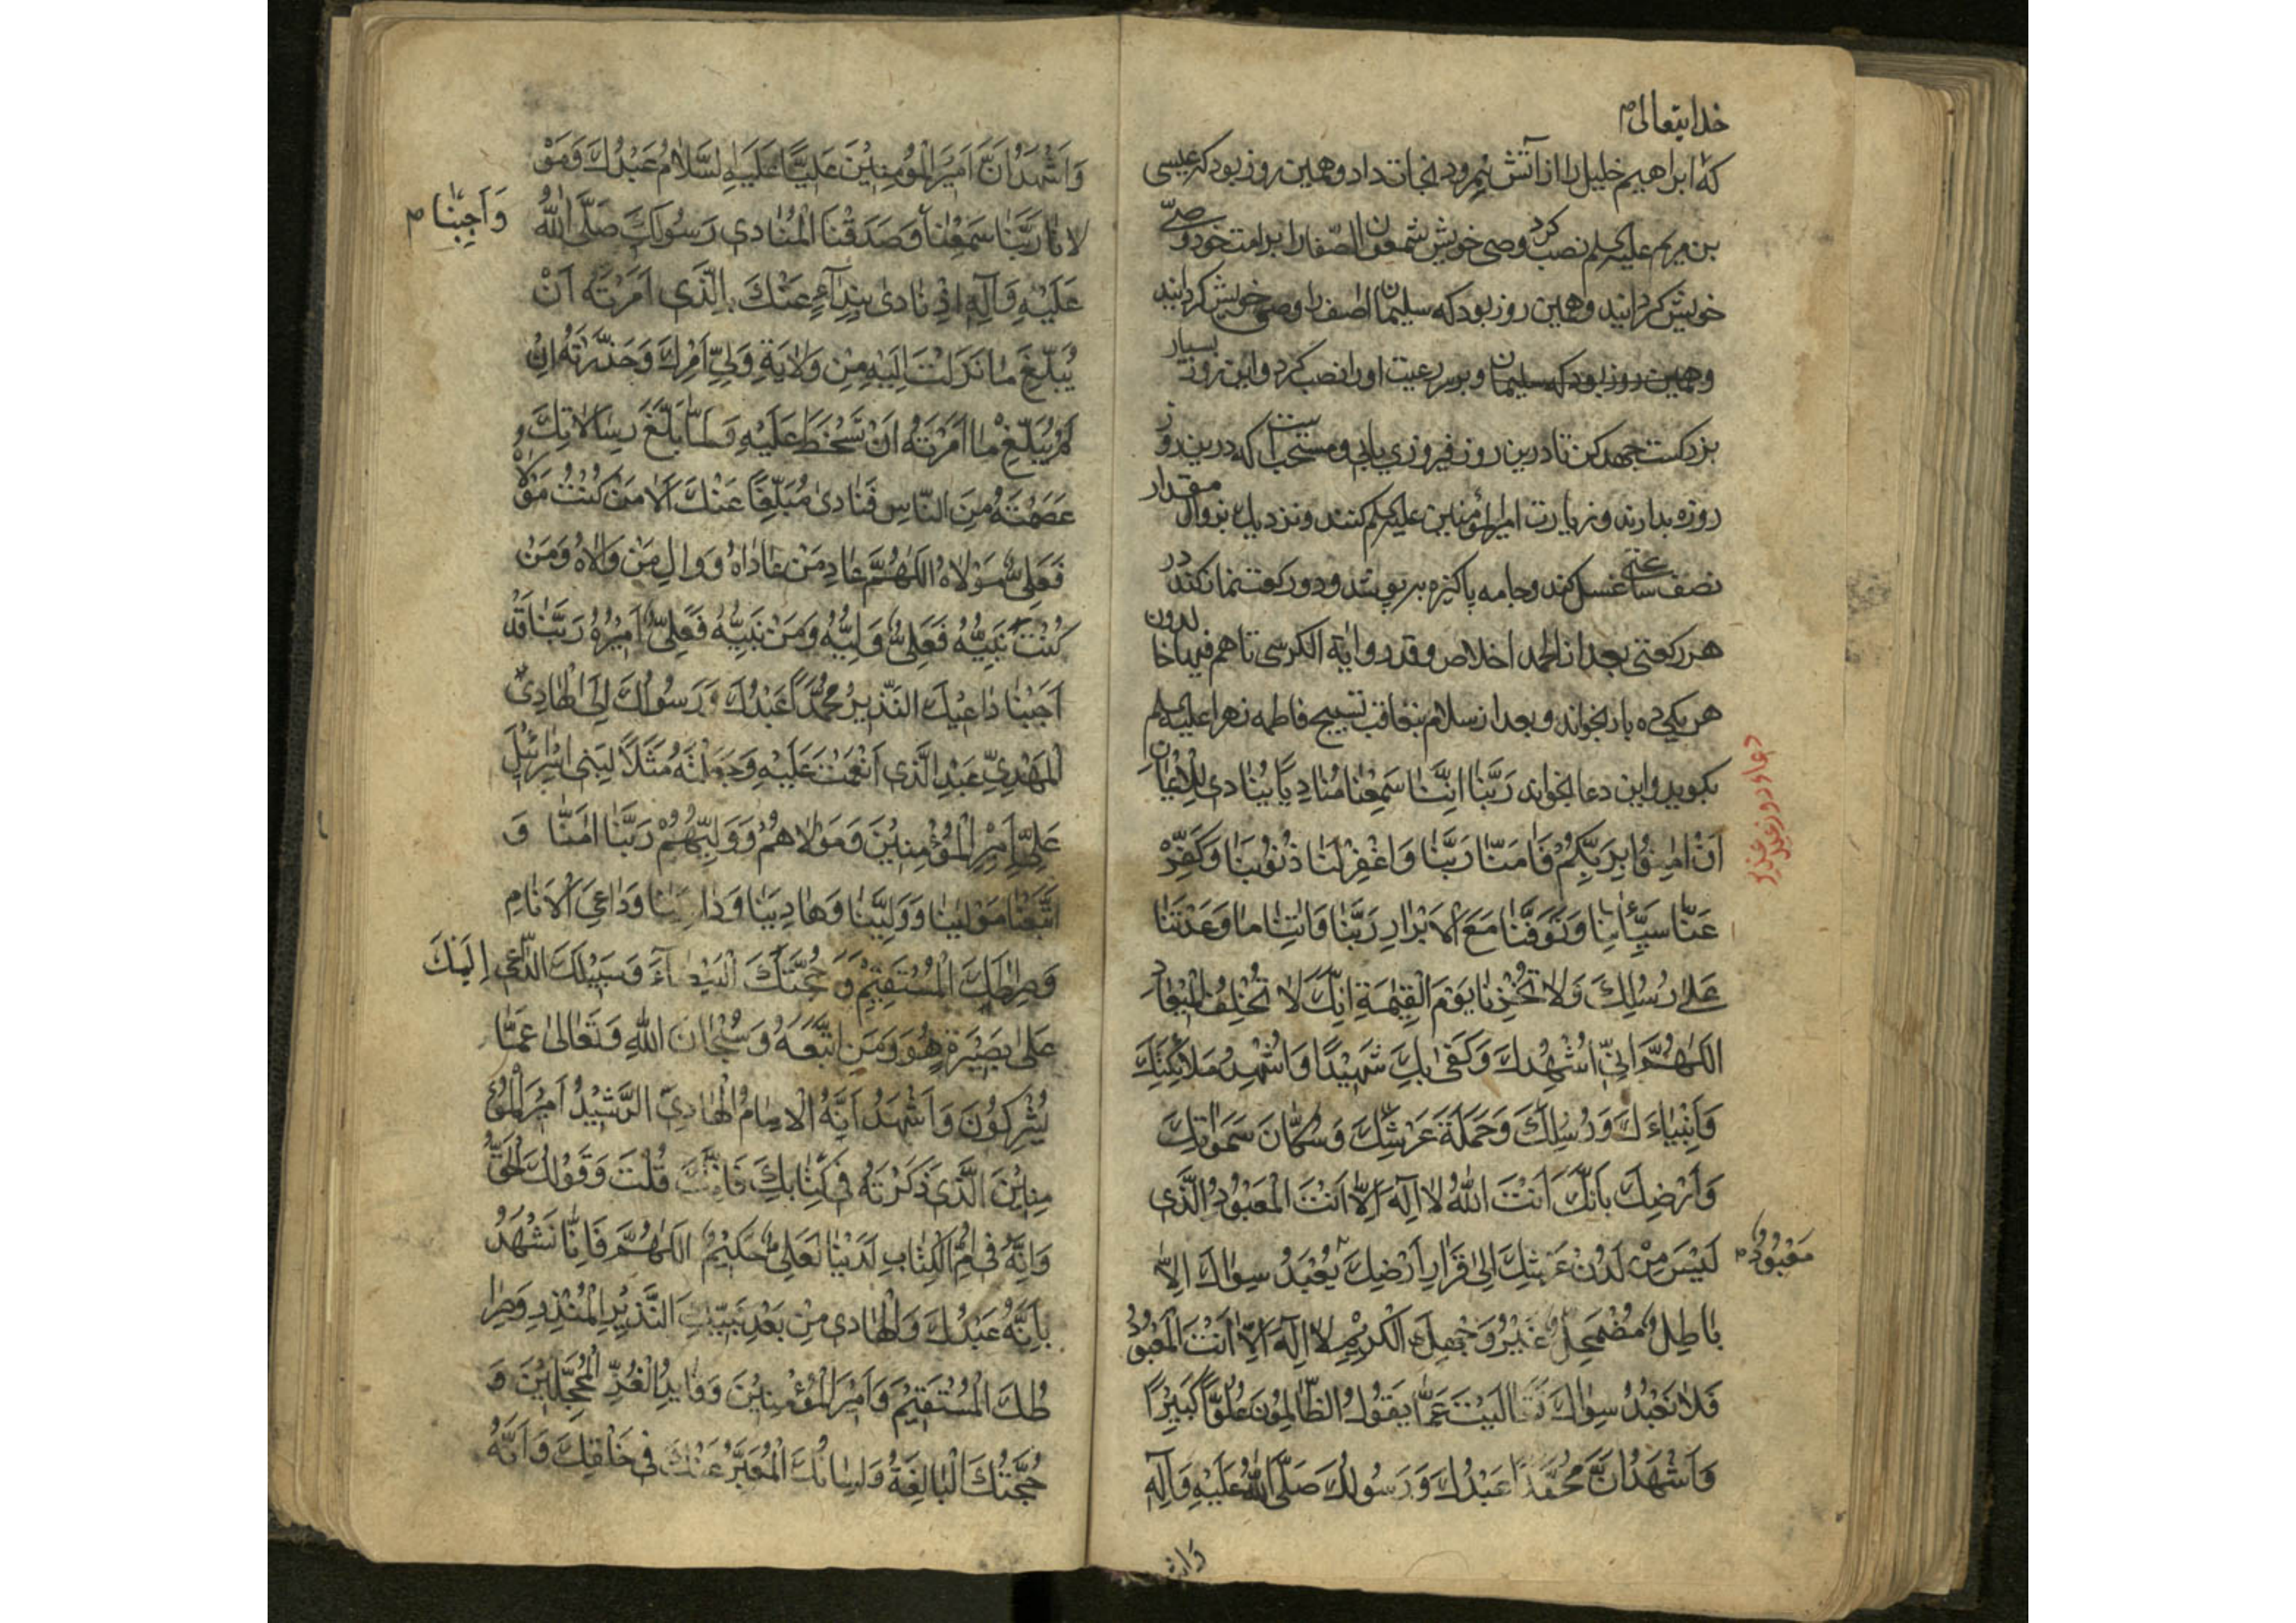 خدایتعالی م
که ابراهیم خلیل را از آتش نمرود نجات داد و همین روز بود که عیسی
بن مریم علیه السلم نصب کرد وصی خویش شمعون الصفا را بر امت خود وصی
خویش کردانید و همین روز بود که سلیمان اصف را وصی خویش کردانید
و همین روز بود که سلیمان و بر سر رعیت او را نصب کرد و این روز بسیار
بزرکست جهد کن تا درین روز فیروزی یابی و مستحب است که درین روز
روزه بدارند و زیارت امیر المؤمنین علیه السلم کنند و نزدیك بزوال مقدار
نصف ساعتی غسل کند و جامه پاکیزه بر پوشد و دو رکعت نماز کند در
هر رکعتی بعد از الحمد اخلاص و قدر و اٰیة الکرسی تا هم فیها خالدون
هر یکی ده بار بخواند و بعد از سلام بتعاقب تسبیح فاطمه زهرا علیه السلم
بکوید و این دعا بخواند رَبَّنٰا اِنَّنٰا سَمِعْنٰا مُنٰادِیًا یُنٰادی لِلْاِیْمٰانِ
دعاء روز عید غدیر
اَنْ اٰمِنُوْا بِرَبِّکُمْ فَاٰمَنّٰا رَبَّنٰا وَاغْفِرْ لَنٰا ذُنُوْبَنٰا وَکَفِّرْ
عَنّٰا سَیِّئٰاتِنٰا وَتَوَفَّنٰا مَعَ الْاَبْرٰارِ رَبَّنٰا وَاٰتِنٰا مٰا وَعَدْتَنٰا
عَلٰی رُسُلِكَ وَلاٰ تُخْزِنٰا یَوْمَ الْقِیٰمَةِ اِنَّكَ لاٰ تُخْلِفُ الْمِیْعٰادَ
اَللّٰهُمَّ اِنّی اُشْهِدُكَ وَکَفٰی بِكَ شَهِیْدًا وَاُشْهِدُ مَلاٰئِکَتِكَ
وَاَنْبِیٰاءَكَ وَرُسُلِكَ وَحَمَلَةَ عَرْشِكَ وَسُکّٰانَ سَمٰوٰاتِكَ
وَاَرْضِكَ بِاَنَّكَ اَنْتَ اللّٰهُ لاٰ اِلٰهَ اِلّاٰ اَنْتَ الْمَعْبُوْدُ الَّذی
لَیْسَ مِنْ لَدُنْ عَرْشِكَ اِلٰی قَرٰارِ اَرْضِكَ یُعْبَدُ سِوٰاكَ اِلّاٰ
مَعْبُوْدٌ م
بٰاطِلٌ مُضْمَحِلٌ غَیْرُ وَجْهِكَ الْکَرِیْمِ لاٰ اِلٰهَ اِلّاٰ اَنْتَ الْمَعْبُوْدُ
فَلاٰ نَعْبُدُ سِوٰاكَ تَعٰالَیْتَ عَمّٰا یَقُوْلُ الظّٰالِمُوْنَ عُلُوًّا کَبِیْرًا
وَاَشْهَدُ اَنَّ مُحَمَّدًا عَبْدُكَ وَرَسُوْلُكَ صَلَّی اللّٰهُ عَلَیْهِ وَاٰلِهِ
وَاَشْهَدُ اَنَّ اَمِیْرَ الْمُؤْمِنِیْنَ عَلِیًّا عَلَیْهِ السَّلاٰمُ عَبْدُكَ وَمَوْ
لاٰنٰا رَبَّنٰا سَمِعْنٰا وَصَدَقْنَا الْمُنٰادی رَسُوْلَكَ صَلَّی اللّٰهُ
وَاَجَبْنٰا م
عَلَیْهِ وَاٰلِهِ اِذْ نٰادٰی بِنِدٰاۤءٍ عَنْكَ بِالَّذی اَمَرْتَهُ اَنْ
یُبَلِّغَ مٰا نَزَلْتَ اِلَیْهِ مِنْ وِلاٰیَةِ وَلِیِّ اَمْرِكَ وَحَذَّرْتَهُ اِنْ
لَمْ یُبَلِّغْ مٰا اَمَرْتَهُ اَنْ تَسْخَطَ عَلَیْهِ وَلَمّٰا بَلَّغَ رِسٰالاٰتِكَ وَ
عَصَمْتَهُ مِنَ النّٰاسِ فَنٰادٰی مُبَلِّغًا عَنْكَ اَلاٰ مَنْ کُنْتُ مَوْلاٰهُ
فَعَلِیٌّ مَوْلاٰهُ اَللّٰهُمَّ عٰادِ مَنْ عٰادٰاهُ وَوٰالِ مَنْ وٰالاٰهُ وَمَنْ
کُنْتُ نَبِیُّهُ فَعَلِیٌّ وَلِیُّهُ وَمَنْ نَبِیُّهُ فَعَلِیٌّ اَمِیْرُهُ رَبَّنٰا قَدْ
اَجَبْنٰا دٰاعِیْكَ النَّذِیْرَ مُحَمَّدًا عَبْدُكَ وَرَسُوْلُكَ اِلَی الْهٰادِی
الْمَهْدِیِّ عَبْدِ الَّذی اَنْعَمْتَ عَلَیْهِ وَجَعَلْتَهُ مَثَلًا لِبَنی اِسْرٰائِلَ
عَلِیٍّ اَمِیْرِ الْمُؤْمِنِیْنَ وَمَوْلاٰهُمْ وَوَلِیِّهُمْ رَبَّنٰا اٰمَنّٰا وَ
اتَّبَعْنٰا مَوْلٰینٰا وَوَلِیَّنٰا وَهٰادِیَنٰا وَدٰاعِیَنٰا وَدٰاعِیَ الْاَنٰامِ
وَصِرٰاطَكَ الْمُسْتَقِیْمَ وَحُجَّتَكَ الْبَیْضٰاۤءَ وَسَبِیْلَكَ الدّٰاعِی اِلَیْكَ
عَلٰی بَصِیْرَةٍ هُوَ وَمَنِ اتَّبَعَهُ وَسُبْحٰانَ اللّٰهِ وَتَعٰالٰی عَمّٰا
یُشْرِکُوْنَ وَاَشْهَدُ اَنَّهُ الْاِمٰامُ الْهٰادِی الرَّشِیْدُ اَمِیْرُ الْمُؤْ
مِنِیْنَ الَّذی ذَکَرْتَهُ فی کِتٰابِكَ فَاِنَّكَ قُلْتَ وَقَوْلُكَ الْحَقُّ
وَاِنَّهُ فی اُمِّ الْکِتٰابِ لَدَیْنٰا لَعَلِیٌّ حَکِیْمٌ اَللّٰهُمَّ فَاِنّٰا نَشْهَدُ
بِاَنَّهُ عَبْدُكَ وَالْهٰادی مِنْ بَعْدِ نَبِیِّكَ النَّذِیْرِ الْمُنْذِرِ وَصِرٰا
طُكَ الْمُسْتَقِیْمُ وَاَمِیْرُ الْمُؤْمِنِیْنَ وَقٰایِدُ الْغُرِّ الْمُحَجَّلِیْنَ وَ
حُجَّتُكَ الْبٰالِغَةُ وَلِسٰانُكَ الْمُعَبِّرُ عَنْكَ فی خَلْقِكَ وَاَنَّهُ